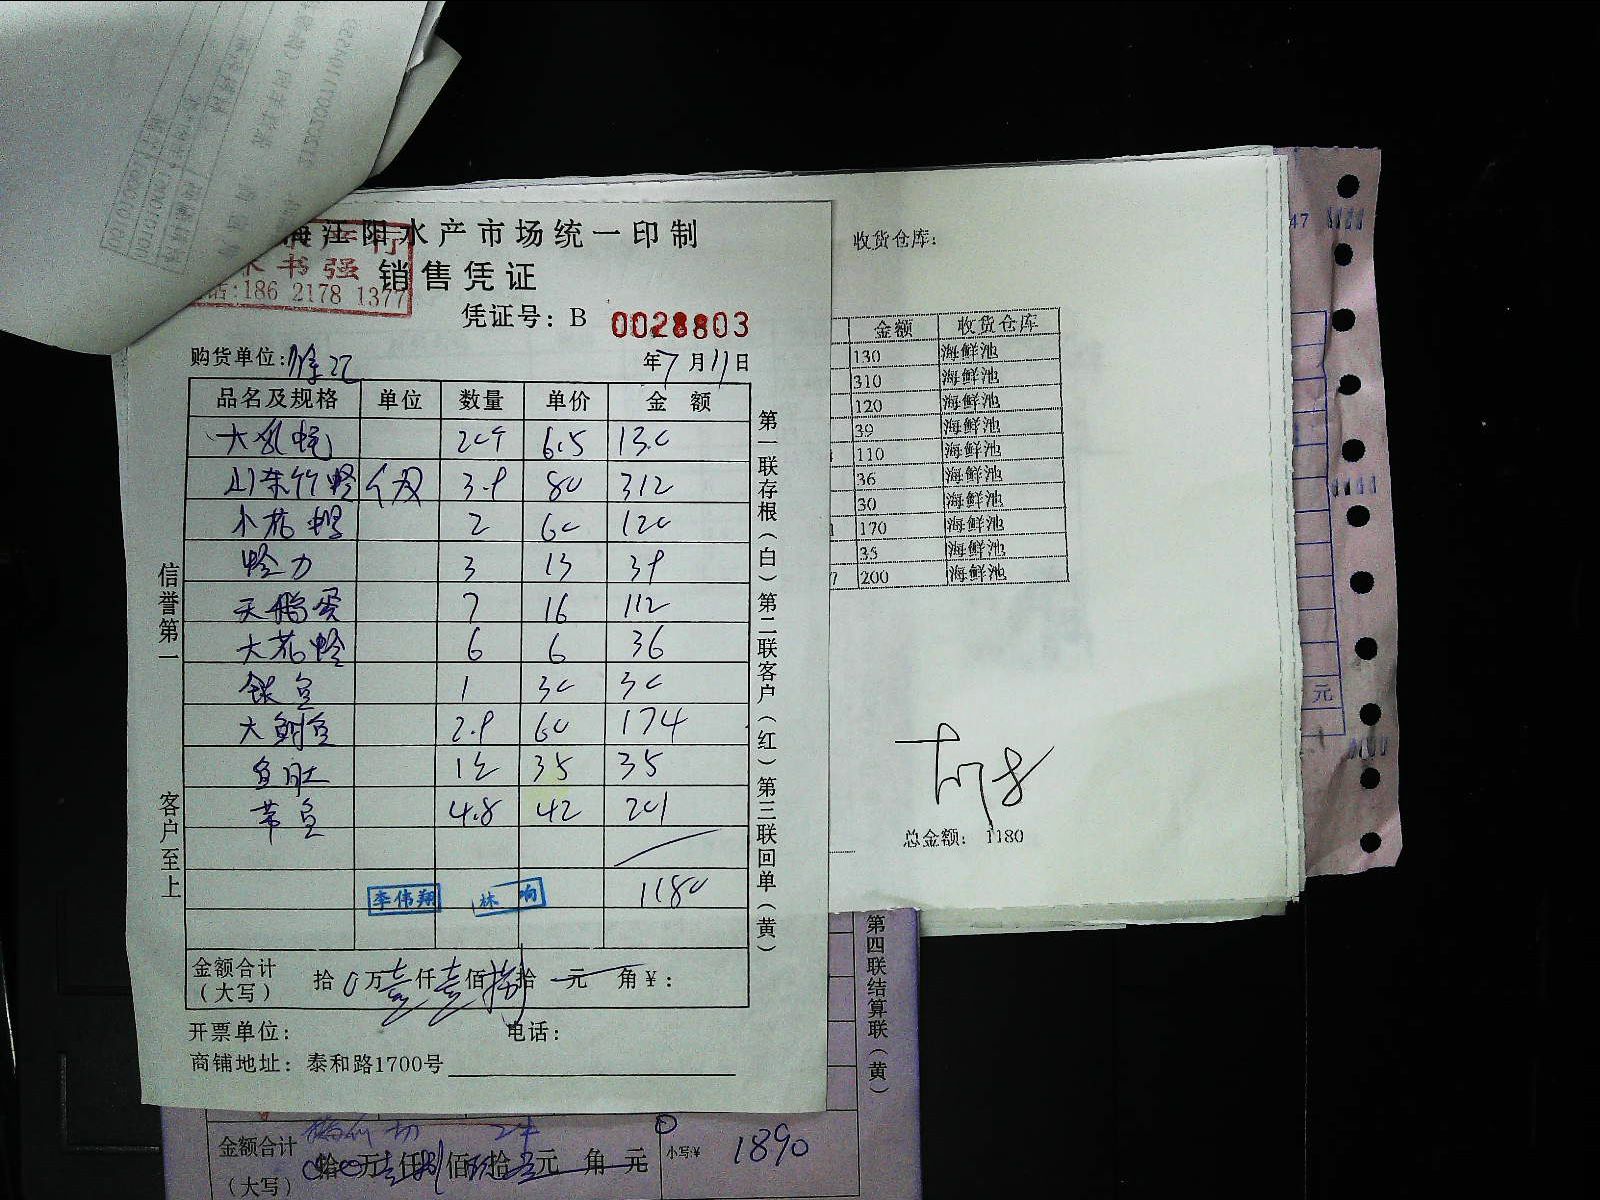 海江阳水产市场统一印制
销售凭证
书强
186 2178 1377
凭证号：B 0028803
购货单位： 年7月11日
品名及规格 单位 数量 单价 金额
6.5 130
山东竹蛏 3.9 80 312
小花螺 2 60 120
蛤力 3 13 39
天鹅蛋 7 16 112
大花蛤 6 6 36
银鱼 1 30 30
大鲥鱼 2.9 60 174
鱼肚 35 35
带鱼 4.8 42 201
李伟翔 林响 1180
金额合计（大写） 拾0万壹仟壹佰捌拾元角￥：
开票单位： 电话：
商铺地址：泰和路1700号
信誉第一 客户至上
第一联存根（白）第二联客户（红）第三联回单（黄）
收货仓库：
金额 收货仓库
130 海鲜池
310 海鲜池
120 海鲜池
39 海鲜池
110 海鲜池
36 海鲜池
30 海鲜池
170 海鲜池
35 海鲜池
200 海鲜池
总金额： 1180
47
元
第四联结算联（黄）
金额合计（大写） 拾万仟佰拾元角元 小写:￥ 1890